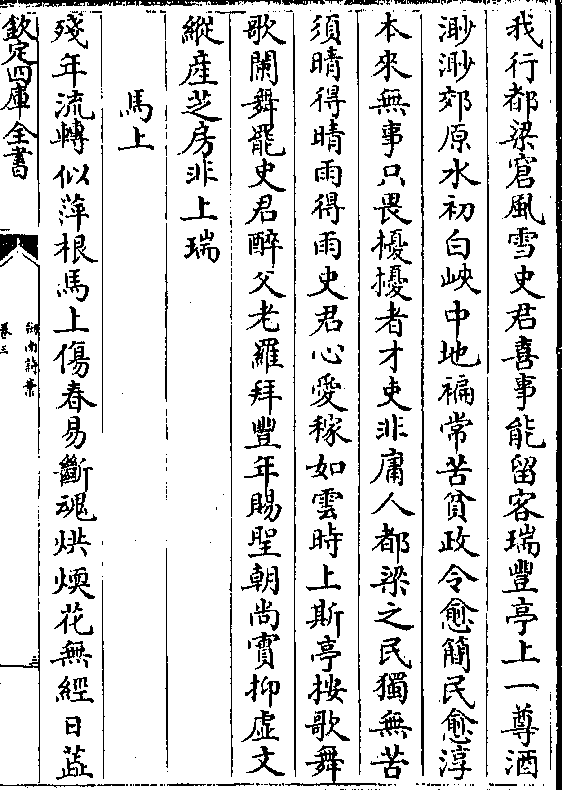 我行都梁窘風雪史君喜事能留客瑞豐亭上一尊酒
渺渺郊原水初白峽中地褊常苦貧政令愈簡民愈淳
本來無事只畏擾擾者才吏非庸人都梁之民獨無苦
須晴得晴雨得雨史君心愛稼如雲時上斯亭按歌舞
歌闌舞罷史君醉父老羅拜豐年賜聖朝尚實抑虛文
縱產芝房非上瑞
馬上
殘年流轉似萍根馬上傷春易斷魂烘煗花無經日蕋
欽定四庫全書
劍南詩稾
卷三
三